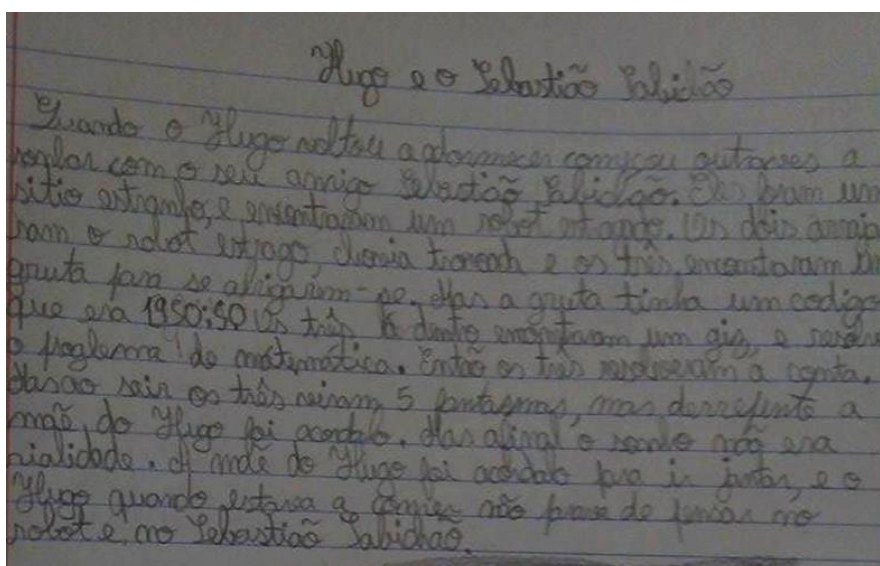 Hugo e o Sebastião Sabidão
Quando o Hugo voltou a adormecer começou outra ves a
sonhar com o seu amigo Sebastião Sabidão. Eles foram um
sitio estranho, e encontaram um robot estragado. Os dois arranja
ram o robot estrago, chovia e os três encontaram
gruta para se abrigarem-se. Mas a gruta tinha um codigo
que era 1950:50 Os três lá dentro encontaram um giz, e
o proglema de matemática. Então os três resolveram a conta.
Mas ao sair os três viram 5 fantasmas, mas derrepente a
mãe, do Hugo foi acordalo. Mas afinal o sonho não era
rialidade. A mãe do Hugo foi acordalo para ir jantar, e o
Hugo quando estava a comer não parava de pensar no
robot e, no Sebastião Sabichão.